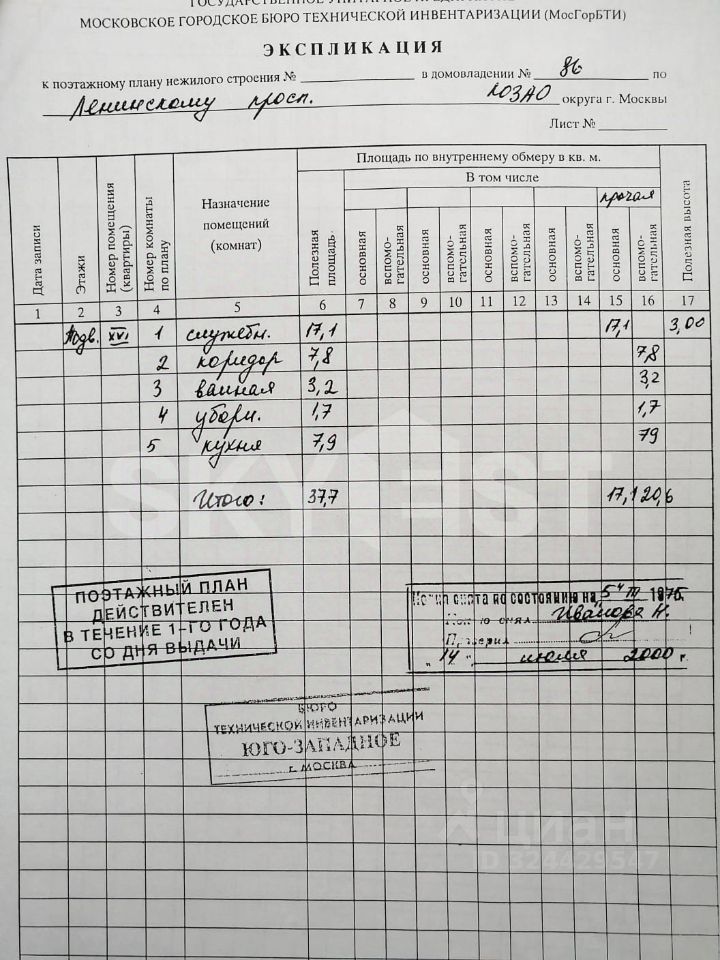 ГОСУДАРСТВЕННОЕ УНИТАРНОЕ ПРЕДПРИЯТИЕ
МОСКОВСКОЕ ГОРОДСКОЕ БЮРО ТЕХНИЧЕСКОЙ ИНВЕНТАРИЗАЦИИ (МосГорБТИ)
ЭКСПЛИКАЦИЯ
к поэтажному плану нежилого строения № в домовладении № 86 по
Ленинскому просп. ЮЗАО округа г. Москвы
Лист №
Дата записи
Этажи
Номер помещения (квартиры)
Номер комнаты по плану
Назначение
помещений
(комнат)
Площадь по внутреннему обмеру в кв. м.
Полезная площадь
В том числе
прочая
основная вспомо-гательная основная вспомо-гательная основная вспомо-гательная основная вспомо-гательная основная вспомо-гательная
Полезная высота
1 2 3 4 5 6 7 8 9 10 11 12 13 14 15 16 17
Подв. XVI 1 служебн. 17,1 17,1 3,00
2 коридор 7,8 7,8
3 ванная 3,2 3,2
4 уборн. 1,7 1,7
5 кухня 7,9 79
Итого: 37,7 17,1 20,6
SKY EST
ПОЭТАЖНЫЙ ПЛАН
ДЕЙСТВИТЕЛЕН
В ТЕЧЕНИЕ 1-ГО ГОДА
СО ДНЯ ВЫДАЧИ
по состоянию на
Иванова Н.
"14" июля 2000 г.
БЮРО
ТЕХНИЧЕСКОЙ ИНВЕНТАРИЗАЦИИ
ЮГО-ЗАПАДНОЕ
г. МОСКВА
циан
ID 324429547